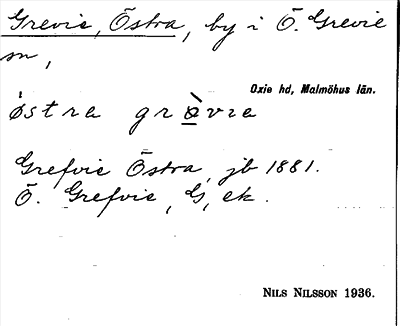 Grevie, Östra, by i Ö. Grevie
sn,
Oxie hd, Malmöhus län.
östra grὰvıa
Grefvie Östra, jb 1881.
Ö. Grefvie, G, ek.
NILS NILSSON 1936.